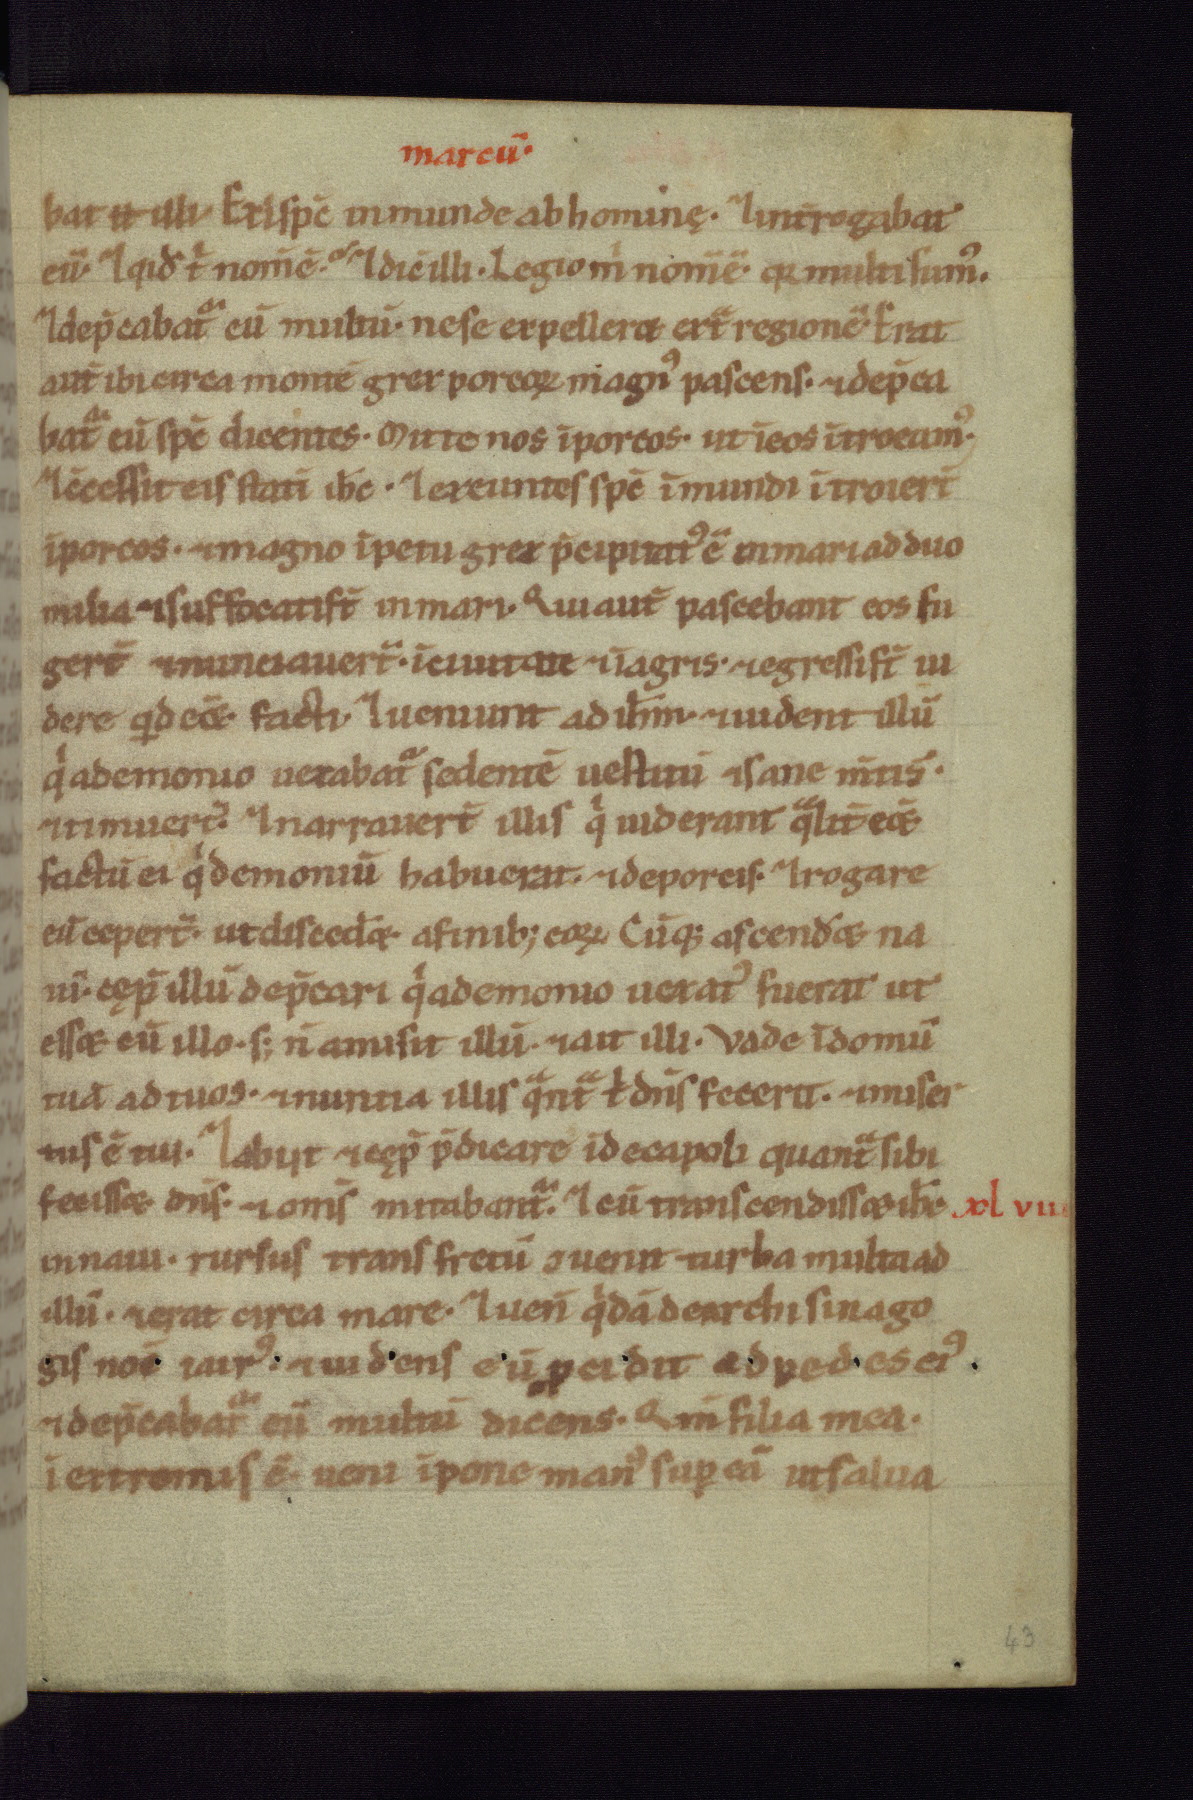 marcū·
bat ił illi· Exi sp̄c inmunde ab homine̜· ⁊ int̄rogabat
eū· ⁊ qid t̄ nom̄ē· ⁊ dic̄ illi· Legio m̄ nom̄ē· qꝛ multi sum᷒·
⁊ dep̄cabat̄ eū multū· ne se expelleret ext̄ regionē· Erat
aut̄ ibi circa montē grex porcoꝝ magn᷒ pascens· ⁊ dep̄ca
bat̄ eū sp̄c dicentes· Mitte nos ī porcos· ut ī eos ītroeam᷒·
⁊ c̄cessit eis stati ih̄c· ⁊ exeuntes sp̄c īmundi ītroier̄t
ī porcos· ⁊ magno īpetu grex p̄cipitat᷒ ē in mari ad duo
milia ⁊ suffocati st̄ in mari· Qui aut̄ pascebant eos fu
gert̄ ⁊ nunciauert̄· ī ciuitate ⁊ ī agris· ⁊ egressi st̄ ui
dere qd eēt facti· ⁊ ueniunt ad ih̄m· ⁊ uident illū
q' a demonio uexabat̄ sedentē uestitū ⁊ sane m̄tis·
⁊ timuert̄· ⁊ narrauert̄ illis q' uiderant q̄lit̄ eēt
factū ei q' demoniū habuerat· ⁊ de porcis· ⁊ rogare
eū cepert̄· ut discedet· a finib; eoꝝ· Cūq; ascendet na
uī· ce̜p̄ illū dep̄cari q' a demonio uexat᷒ fuerat ut
esset cū illo· s; n̄ amisit illū· ⁊ ait illi· Vade ī domū
tuā ad tuos· ⁊ nuntia illis q̄nt̄ t' dn̄s fecerit· ⁊ miser
tus ē tui· ⁊ abiit ⁊ ce̜p̄ p̄dicare ī decapoli quant̄ sibi
fecisset dn̄s· ⁊ om̄s mirabant̄· ⁊ cū transcendisset ih̄c xl vii
in naui· rursus trans fretū ↄuenit turba multa ad
illū· ⁊ erat circa mare· ⁊ uen̄ q'dā de archi sinago
gis noē iair᷒· ⁊ uidens eū pcidit ad pedes ei᷒·
⁊ dep̄cabat̄ eū multū dicens· Qm̄ filia mea·
ī extremis ē· ueni īpone man᷒ sup eā ut salua
43